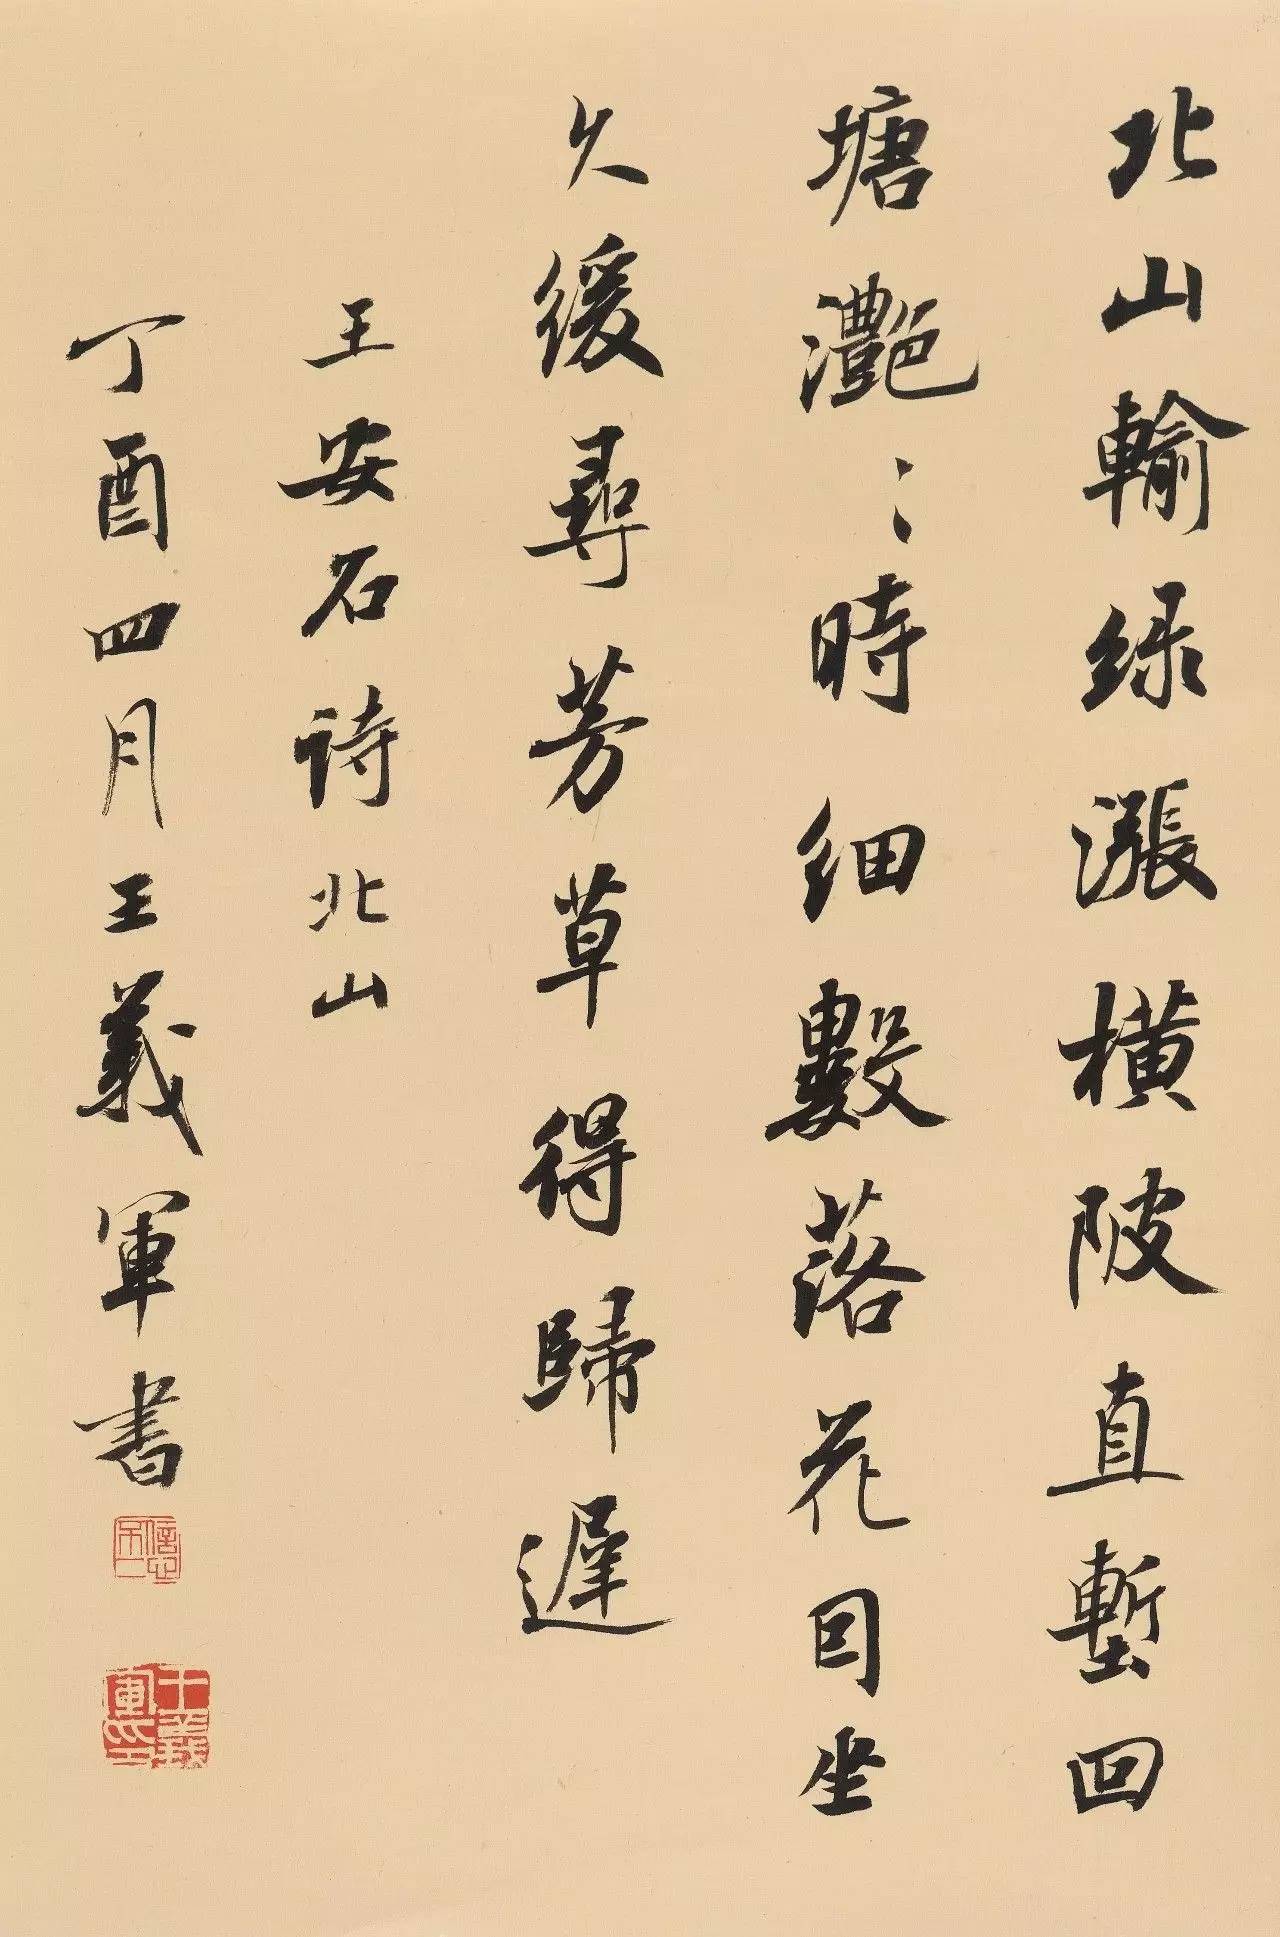 北山輸绿漲橫陂直塹回
塘灧〻時细數落花因坐
久缓尋芳草得歸遲
王安石诗北山
丁酉四月王義軍書
王義軍印